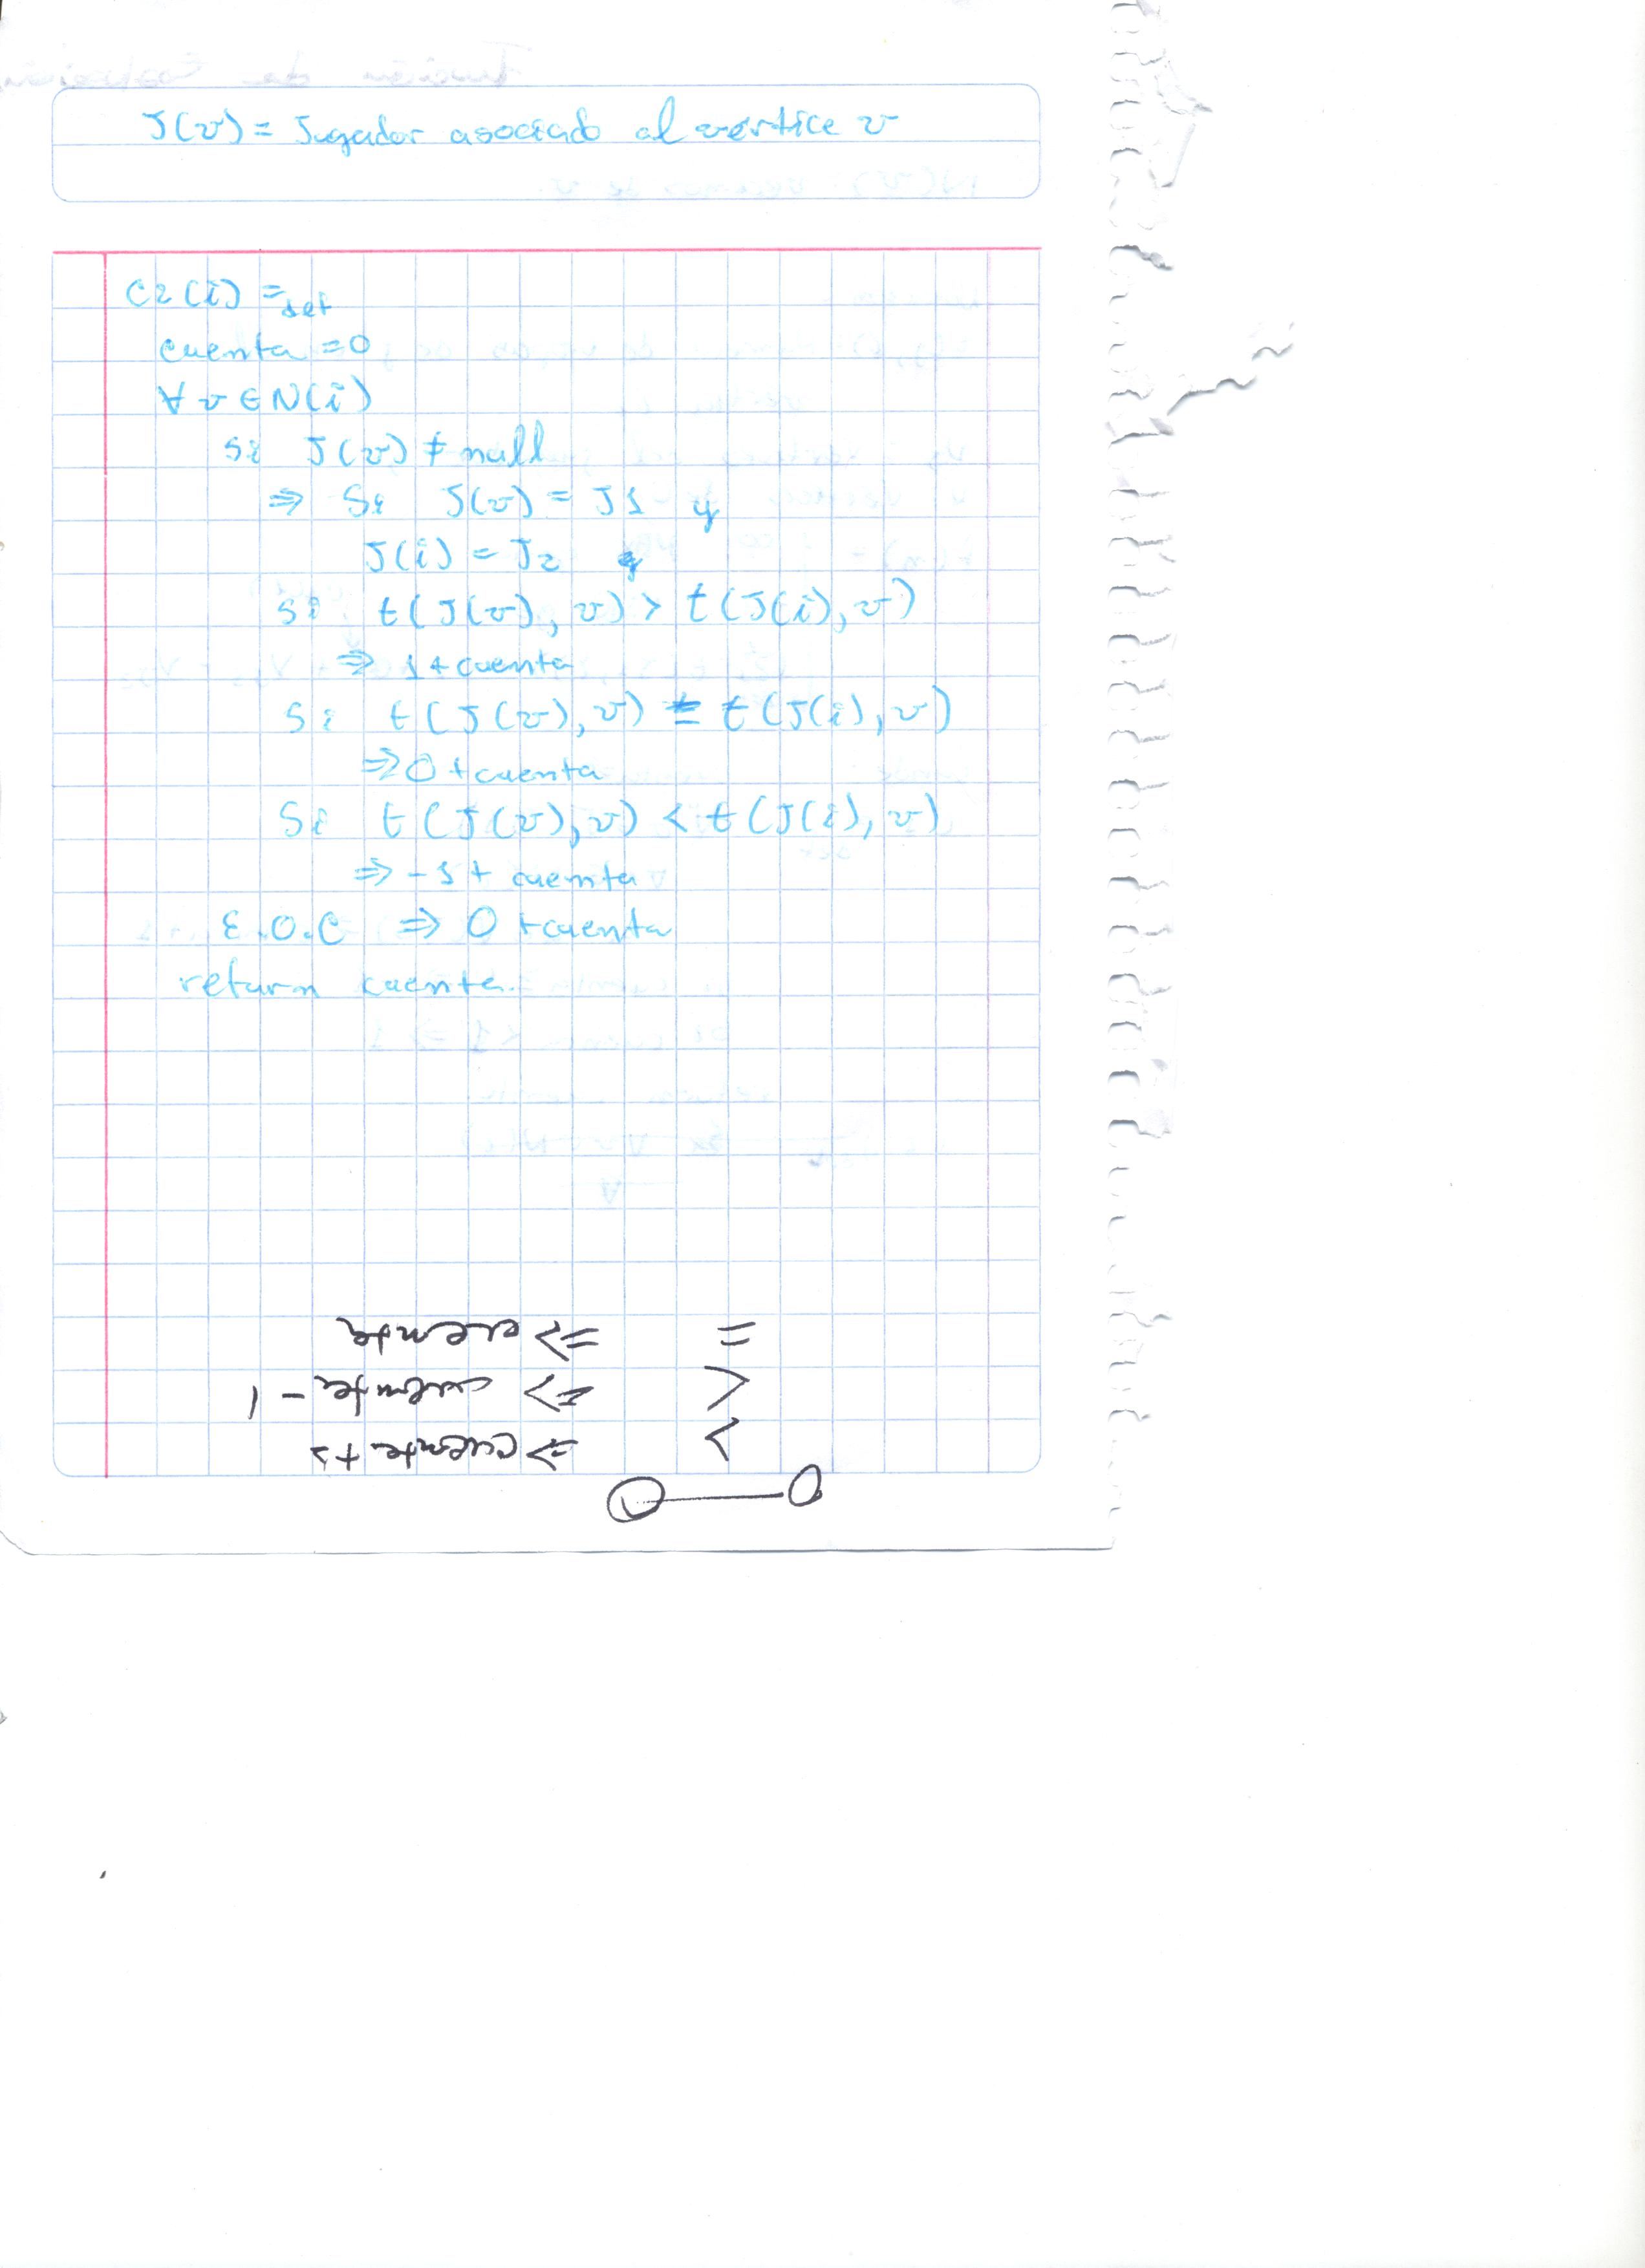 J(v) = Jugador asociado al vértice v
C2(i) =def
cuenta = 0
∀ v ∈ N(i)
si J(v) ≠ null
⇒ Si J(v) = J1 y
J(i) = J2 y
si t(J(v), v) > t(J(i), v)
⇒ 1 + cuenta
Si t(J(v), v) = t(J(i), v)
⇒ 0 + cuenta
Si t(J(v), v) < t(J(i), v)
⇒ -1 + cuenta
E.O.C ⇒ 0 + cuenta
return cuenta.
< => cuenta +
> => cuenta - 1
= => cuenta